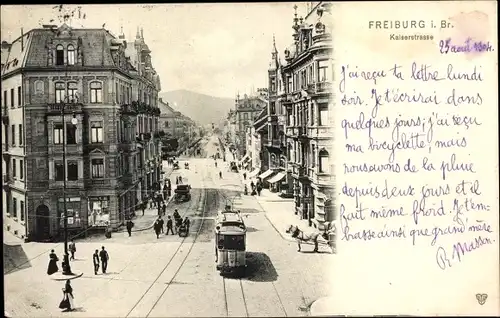 FREIBURG i. Br.
Kaiserstrasse
25 août 1904.
j'ai reçu ta lettre lundi
soir. Je t'écrirai dans
quelques jours; j'ai reçu
ma bicyclette, mais
nous avons de la pluie
depuis deux jours et il
fait même froid. Je t'em-
brasse ainsi que grand'mère
R. Masson